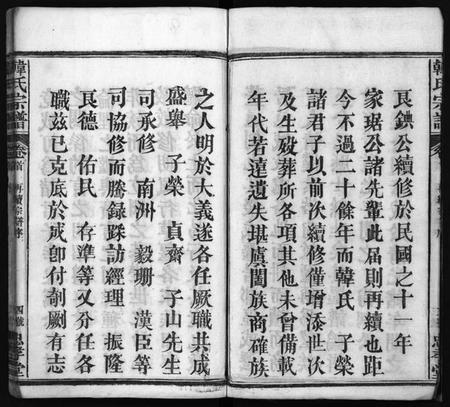 艮錪公續修於民國之十一年
家琚公諸先輩此屆則再續也距
今不過二十餘年而韓氏 子榮
諸君子以前次續修僅增添世次
及生歿葬所各項其他未曾備載
年代若遠遺失堪虞闔族商確於
之人明於大義遂各任厥職共成
盛舉 子榮 貞齋 子山先生
司承修 南洲 毅珊 漢臣等
司協修而謄錄踩訪經理 振隆
艮德 佑民 存準等又分任各
職茲已克底於成卽付剞劂有志
韓氏宗譜
卷首
再續宗譜序
四號
忠孝堂
韓氏宗譜